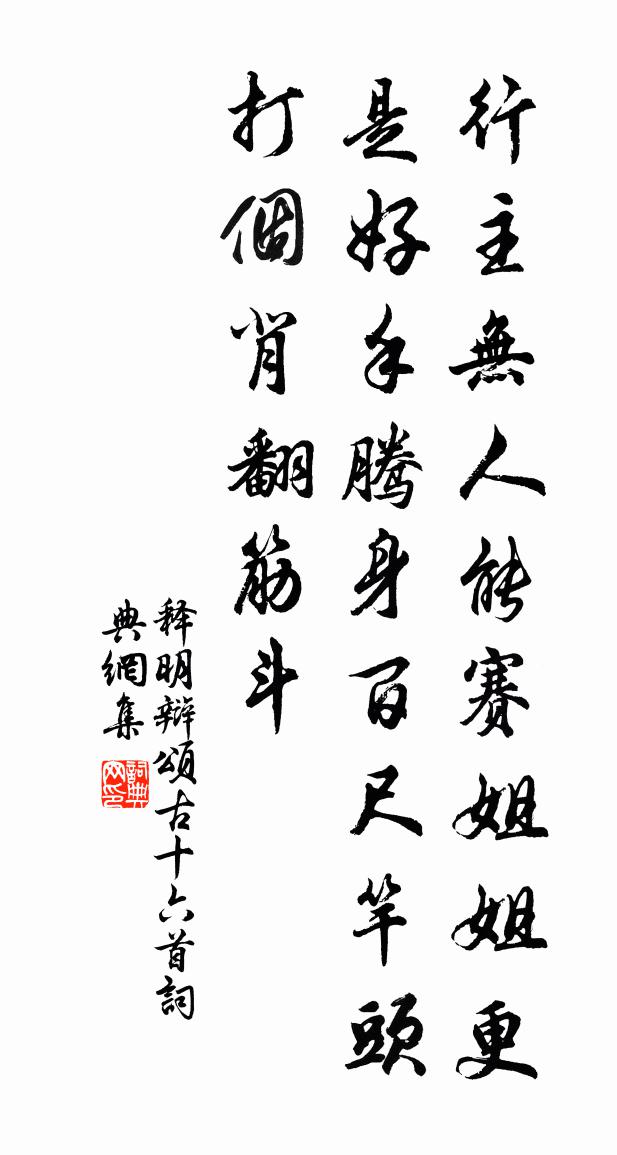 行主無人能賽姐姐更
是好手騰身百尺竿頭
打個背翻筋斗
释明辯頌古十六首詞
典網集
詞典
网印